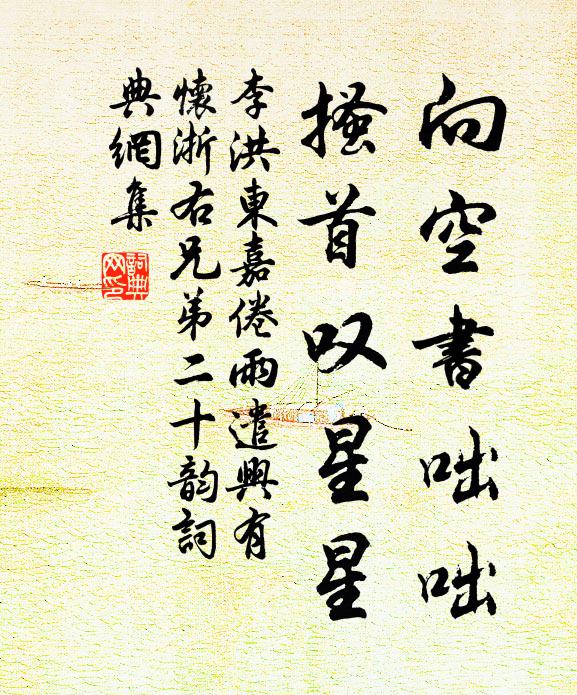 向空書咄咄
搔首叹星星
李洪東嘉倦雨遣興有
懷浙右兄弟二十韵詞
典網集
詞典网印